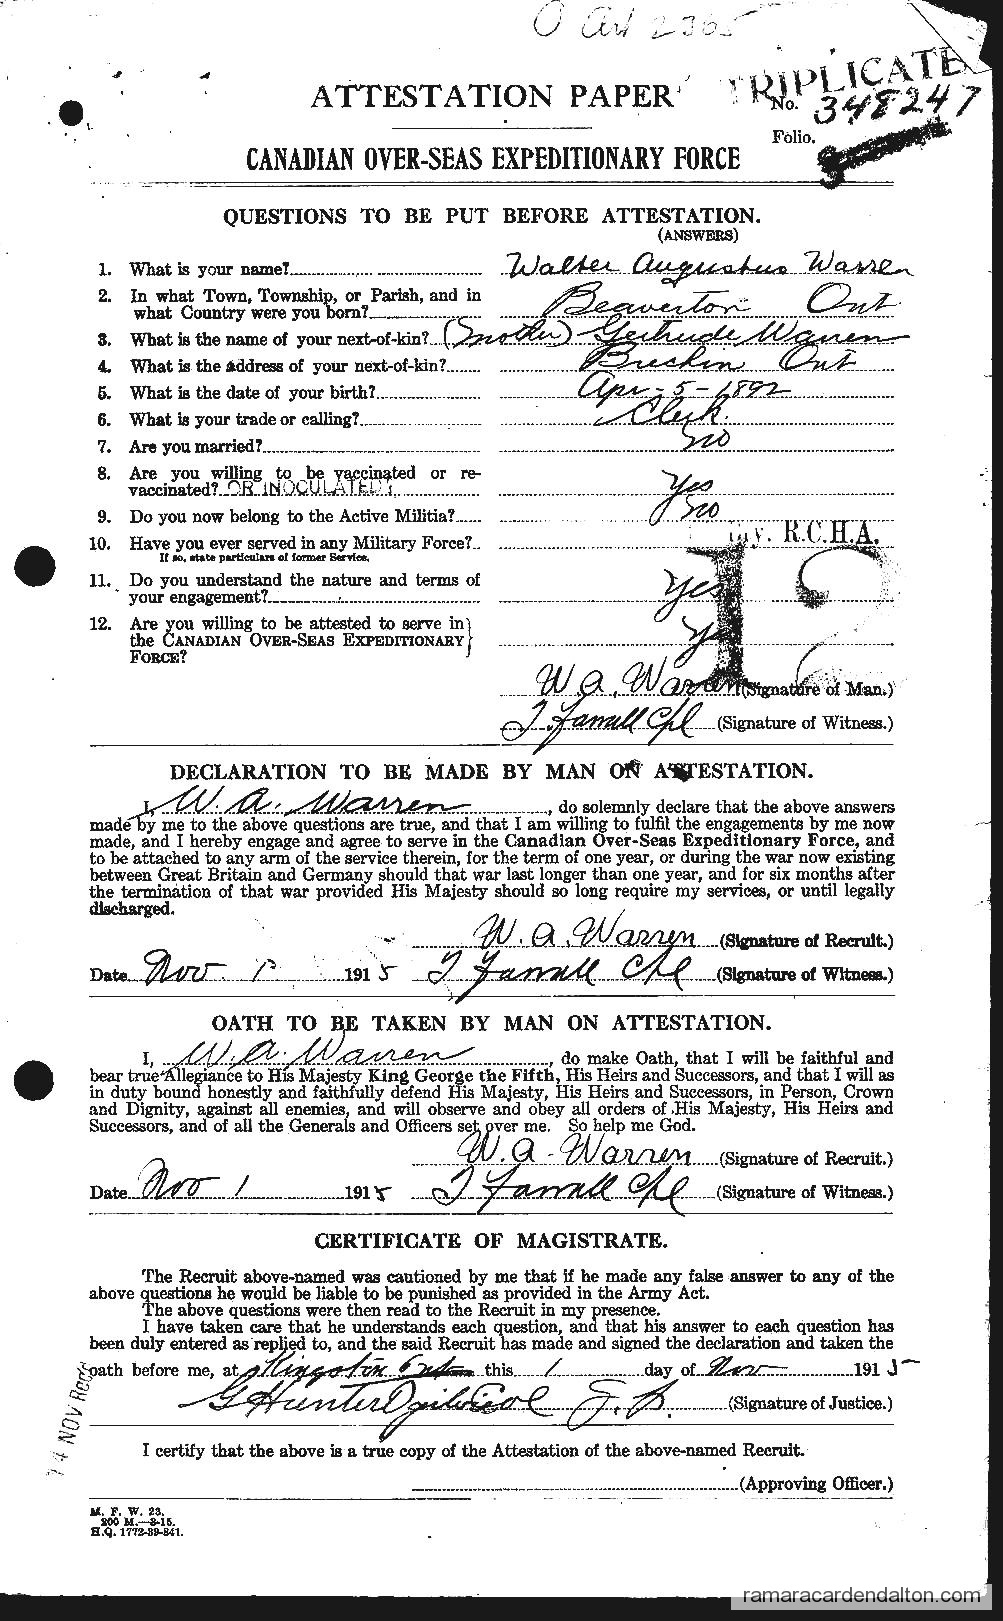 O Art 2365
TRIPLICATE
ATTESTATION PAPER
No. 348247
Folio.
CANADIAN OVER-SEAS EXPEDITIONARY FORCE
QUESTIONS TO BE PUT BEFORE ATTESTATION.
(ANSWERS)
1. What is your name? Walter Augustus Warren
2. In what Town, Township, or Parish, and in
what Country were you born? Beaverton Ont
3. What is the name of your next-of-kin? (Mother) Gertrude Warren
4. What is the address of your next-of-kin? Brechin Ont
5. What is the date of your birth? Apr-5-1892
6. What is your trade or calling? Clerk.
7. Are you married? No
8. Are you willing to be vaccinated or re-
vaccinated? OR INOCULATED? Yes
9. Do you now belong to the Active Militia? No
10. Have you ever served in any Military Force? R.C.H.A.
If so, state particulars of former Service.
11. Do you understand the nature and terms of
your engagement? Yes
12. Are you willing to be attested to serve in
the CANADIAN OVER-SEAS EXPEDITIONARY
FORCE?
W A. Warren (Signature of Man.)
T. Farrall Cpl (Signature of Witness.)
DECLARATION TO BE MADE BY MAN ON ATTESTATION.
I, W. A. Warren, do solemnly declare that the above answers
made by me to the above questions are true, and that I am willing to fulfil the engagements by me now
made, and I hereby engage and agree to serve in the Canadian Over-Seas Expeditionary Force, and
to be attached to any arm of the service therein, for the term of one year, or during the war now existing
between Great Britain and Germany should that war last longer than one year, and for six months after
the termination of that war provided His Majesty should so long require my services, or until legally
discharged.
W. A. Warren (Signature of Recruit.)
Date Nov. 1 1915 T Farrall Cpl (Signature of Witness.)
OATH TO BE TAKEN BY MAN ON ATTESTATION.
I, W. A. Warren, do make Oath, that I will be faithful and
bear true Allegiance to His Majesty King George the Fifth, His Heirs and Successors, and that I will as
in duty bound honestly and faithfully defend His Majesty, His Heirs and Successors, in Person, Crown
and Dignity, against all enemies, and will observe and obey all orders of His Majesty, His Heirs and
Successors, and of all the Generals and Officers set over me. So help me God.
W. A. Warren (Signature of Recruit.)
Date Nov 1 1915 T Farrall Cpl (Signature of Witness.)
CERTIFICATE OF MAGISTRATE.
The Recruit above-named was cautioned by me that if he made any false answer to any of the
above questions he would be liable to be punished as provided in the Army Act.
The above questions were then read to the Recruit in my presence.
I have taken care that he understands each question, and that his answer to each question has
been duly entered as replied to, and the said Recruit has made and signed the declaration and taken the
oath before me, at Kingston Ont this 1 day of Nov 1915
G Hunter Ogilvie Col J.P. (Signature of Justice.)
I certify that the above is a true copy of the Attestation of the above-named Recruit.
(Approving Officer.)
M. F. W. 23.
200 M.—8-15.
H.Q. 1772-39-841.
ramaracardendalton.com